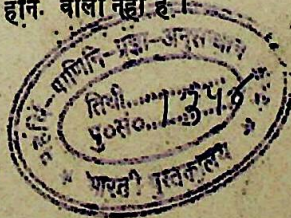 होने वाला नहीं है।
पाणिनि-प्रज्ञा-अनुसन्धान
तिथी..............
पु०सं०.....1346
भारती पुस्तकालय